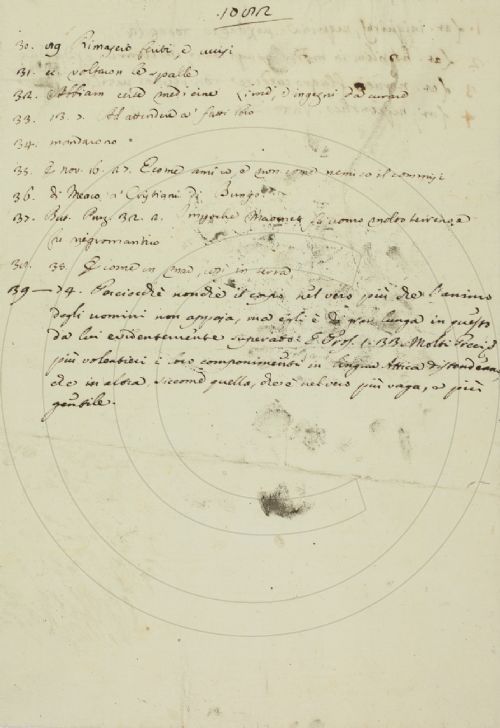 1082
30. 29 Rimasero feriti, e uccisi
31. ec. voltaron le spalle
32. Abbiam cerce medicine
33. 13. 7. Ad attendere a' fatti loro
34. mondarono
35. E nov. 16. 27. E come amico, e non come nemico il commise
36. di Meaco, a' Cristiani di Bungo.
37. But. Purg. 32. 2. Impoche Maometto fu uomo molto terreno, e
fu negromantico
38. 38. E come in mar, così in terra
39 — 74. Perciocchè nondrè il capo, nel vero più che l'animo
degli uomini non appaja, ma egli è di gran lunga in questo
da lui evidentemente superato: E Pros. 1. 133. Molti Greci
più volentieri i loro componimenti in lingua Attica distendeano,
che in altra, siccome quella, che è nel vero più vaga, e più
gentile.